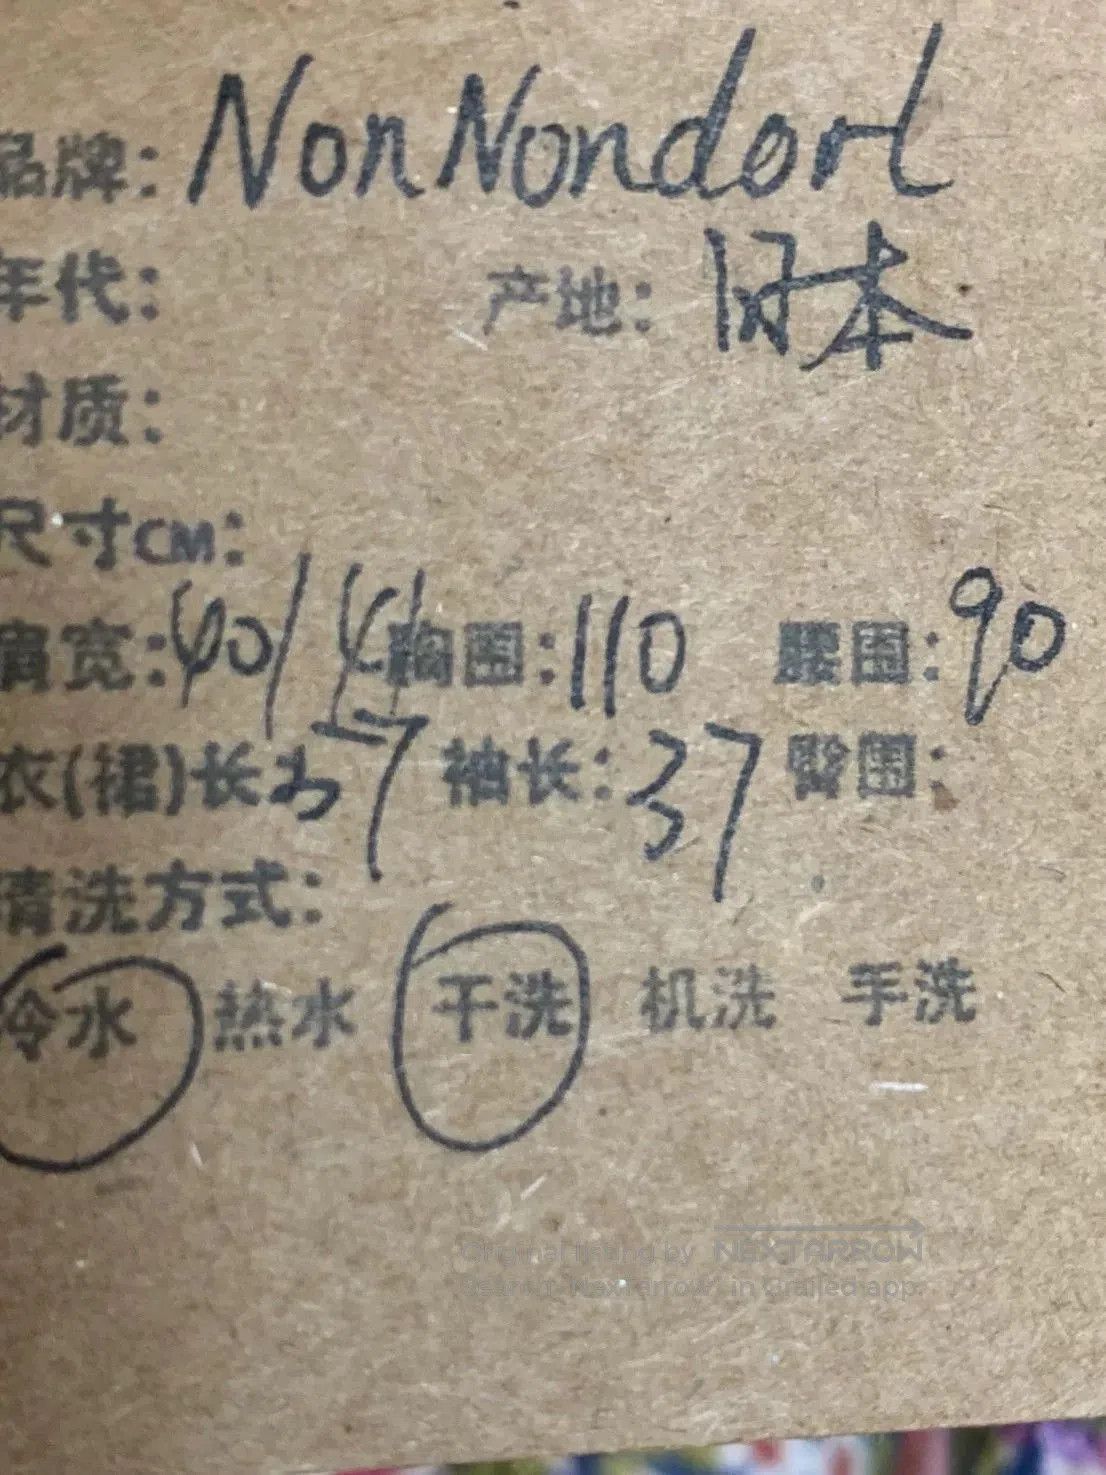 品牌: NonNondorl
年代: 产地: 日本
材质:
尺寸CM:
肩宽: 40 胸围: 110 腰围: 90
衣(裙)长 57 袖长: 37 臀围:
清洗方式:
冷水 热水 干洗 机洗 手洗
Original listing by NEXTARROW
Search "Nextarrow" in Grailed app.